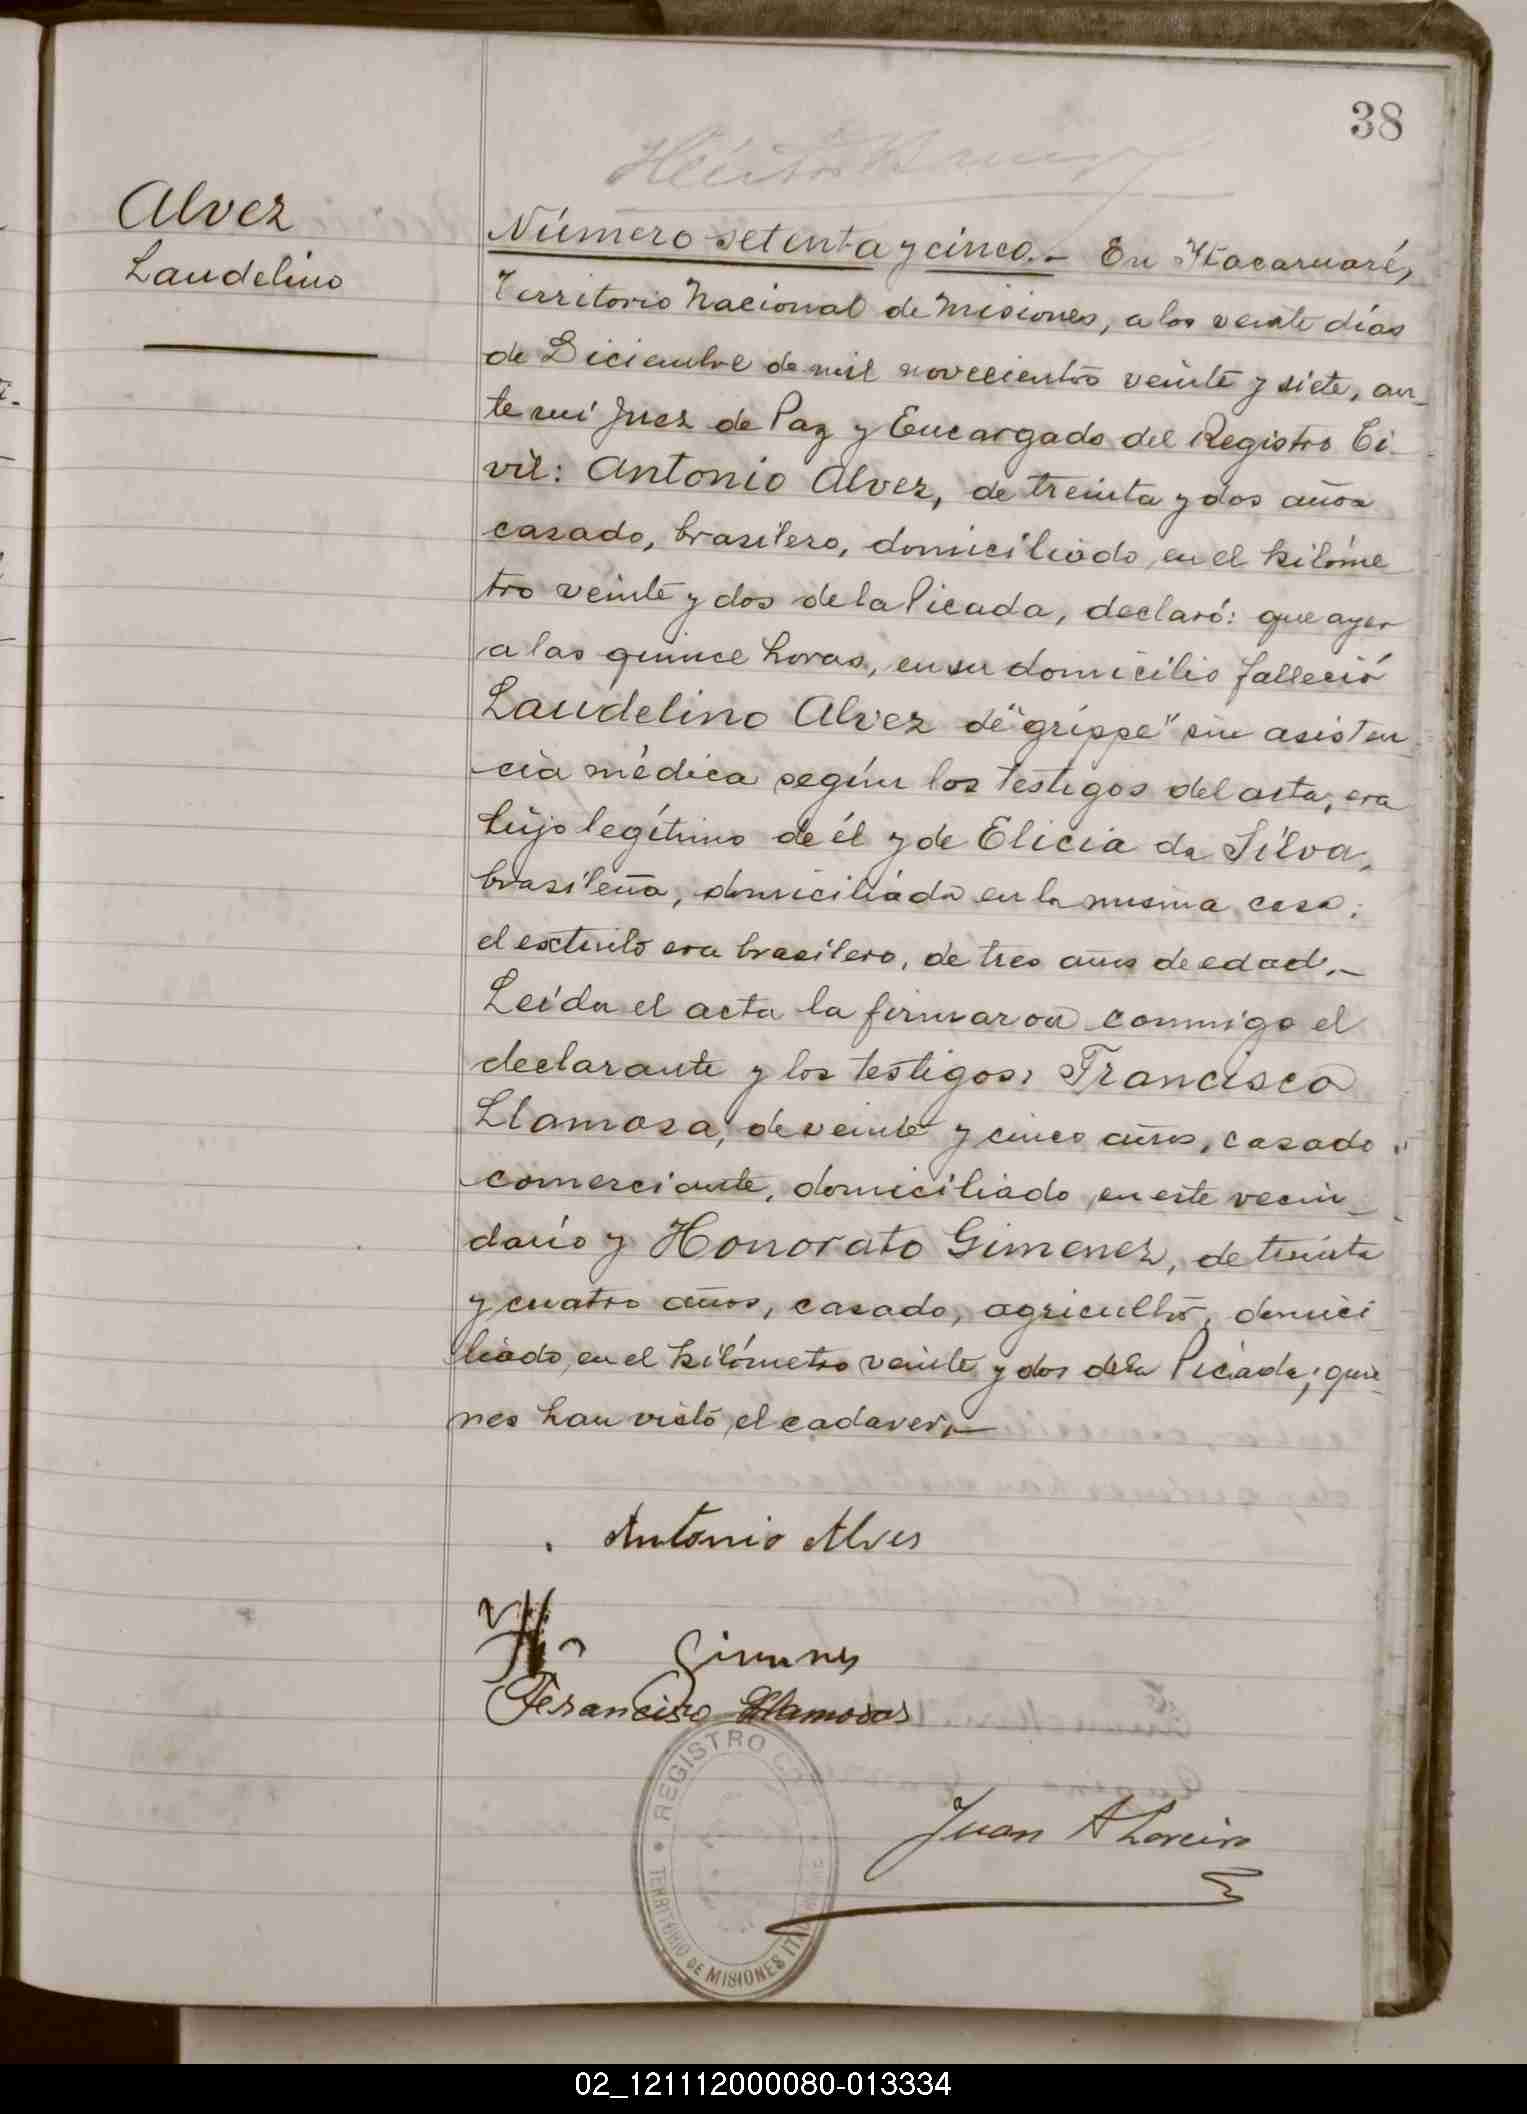 38
Alvez
Laudelino
Número setenta y cinco.- En Itacaruaré,
Territorio Nacional de Misiones, a los veinte días
de Diciembre de mil novecientos veinte y siete, an-
te mi Juez de Paz y Encargado del Registro Ci-
vil: Antonio Alvez, de treinta y dos años
casado, brasilero, domiciliado en el kilóme
tro veinte y dos de la Picada, declaró: que ayer
a las quince horas, en su domicilio falleció
Laudelino Alvez de "grippe" sin asisten
cia médica según los testigos del acta, era
hijo legítimo de él y de Elicia da Silva,
brasileña, domiciliada en la misma casa;
el extinto era brasilero, de tres años de edad.-
Leída el acta la firmaron conmigo el
declarante y los testigos: Francisco
Llamosa, de veinte y cinco años, casado,
comerciante, domiciliado en este vecin-
dario y Honorato Gimenez, de treinta
y cuatro años, casado, agricultor, domici
liado en el kilómetro veinte y dos de la Picada; quie-
nes han visto el cadaver.-
Antonio Alves
Francisco Llamosas
REGISTRO
TERRITORIO DE MISIONES
Juan A
02_121112000080-013334